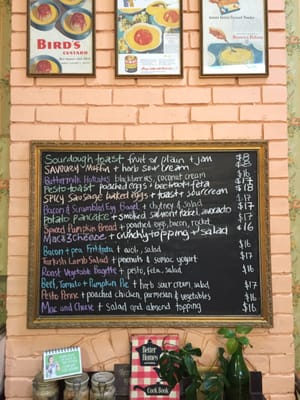 BIRD'S
CUSTARD
Sourdough toast fruit or plain + jam $8
SAVOURY-Muffin + herb sour cream $8
Buttermilk Hotcakes blackberries, coconut cream $16
Pesto toast poached eggs + beetroot + feta $17
SPICY Sausage baked eggs + toast + sour cream $18
Bacon & Scrambled Egg Bagel + chutney & salad $17
Potato pancake + smoked salmon, avocado $17
Spiced Pumpkin Bread + poached eggs, bacon, rocket $17
Mac & 3 Cheese + crunchy topping + salad $16
Bacon + pea Frittata + salad $16
Turkish Lamb Salad + peanuts & sumac yogurt $17
Roast Vegetable Baguette + pesto, feta, salad $16
Beef, Tomato + Pumpkin Pie + herb sour cream salad $17
Pesto Penne + poached chicken, parmesan & vegetables $16
Mac and Cheese + Salad and almond topping $16
Better
Homes
Cook Book